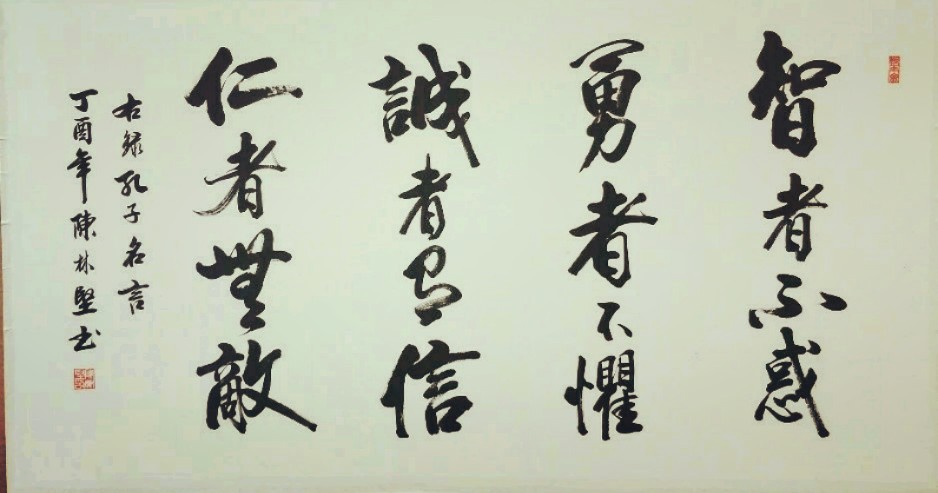 智者不惑
勇者不懼
誠者有信
仁者無敵
右錄孔子名言
丁酉年陳林堅书